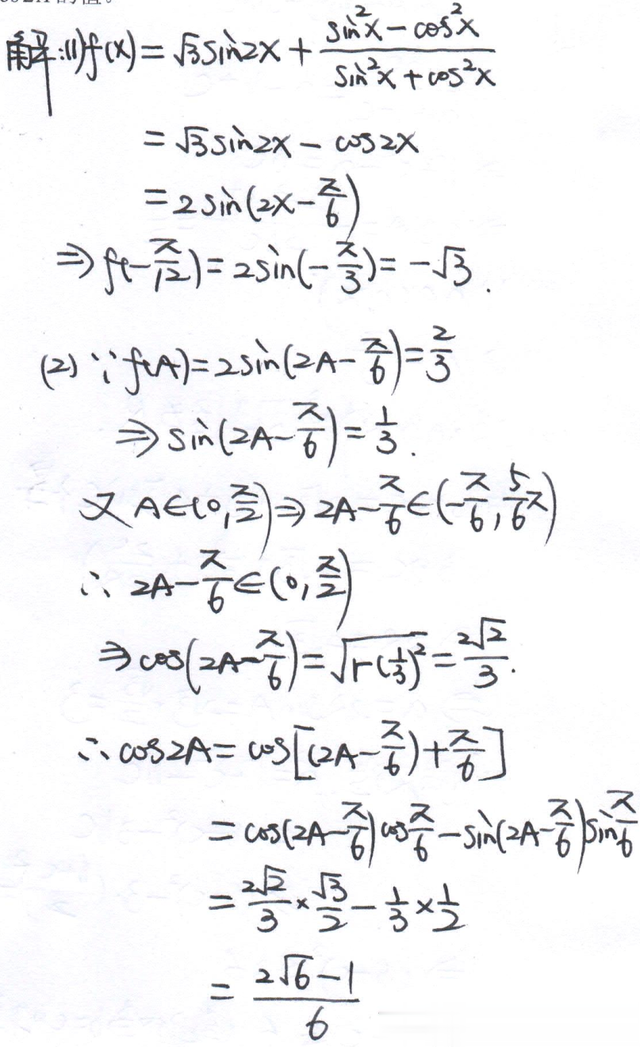 解:(1)f(x)=√3sin2x+(sin²x-cos²x)/(sin²x+cos²x)
=√3sin2x-cos2x
=2sin(2x-π/6)
⇒f(-π/12)=2sin(-π/3)=-√3.
(2)∵f(A)=2sin(2A-π/6)=2/3
⇒sin(2A-π/6)=1/3.
又A∈(0,π/2)⇒2A-π/6∈(-π/6,5/6π)
∴2A-π/6∈(0,π/2)
⇒cos(2A-π/6)=√(1-(1/3)²)=2√2/3.
∴cos2A=cos[(2A-π/6)+π/6]
=cos(2A-π/6)cosπ/6-sin(2A-π/6)sinπ/6
=2√2/3×√3/2-1/3×1/2
=(2√6-1)/6